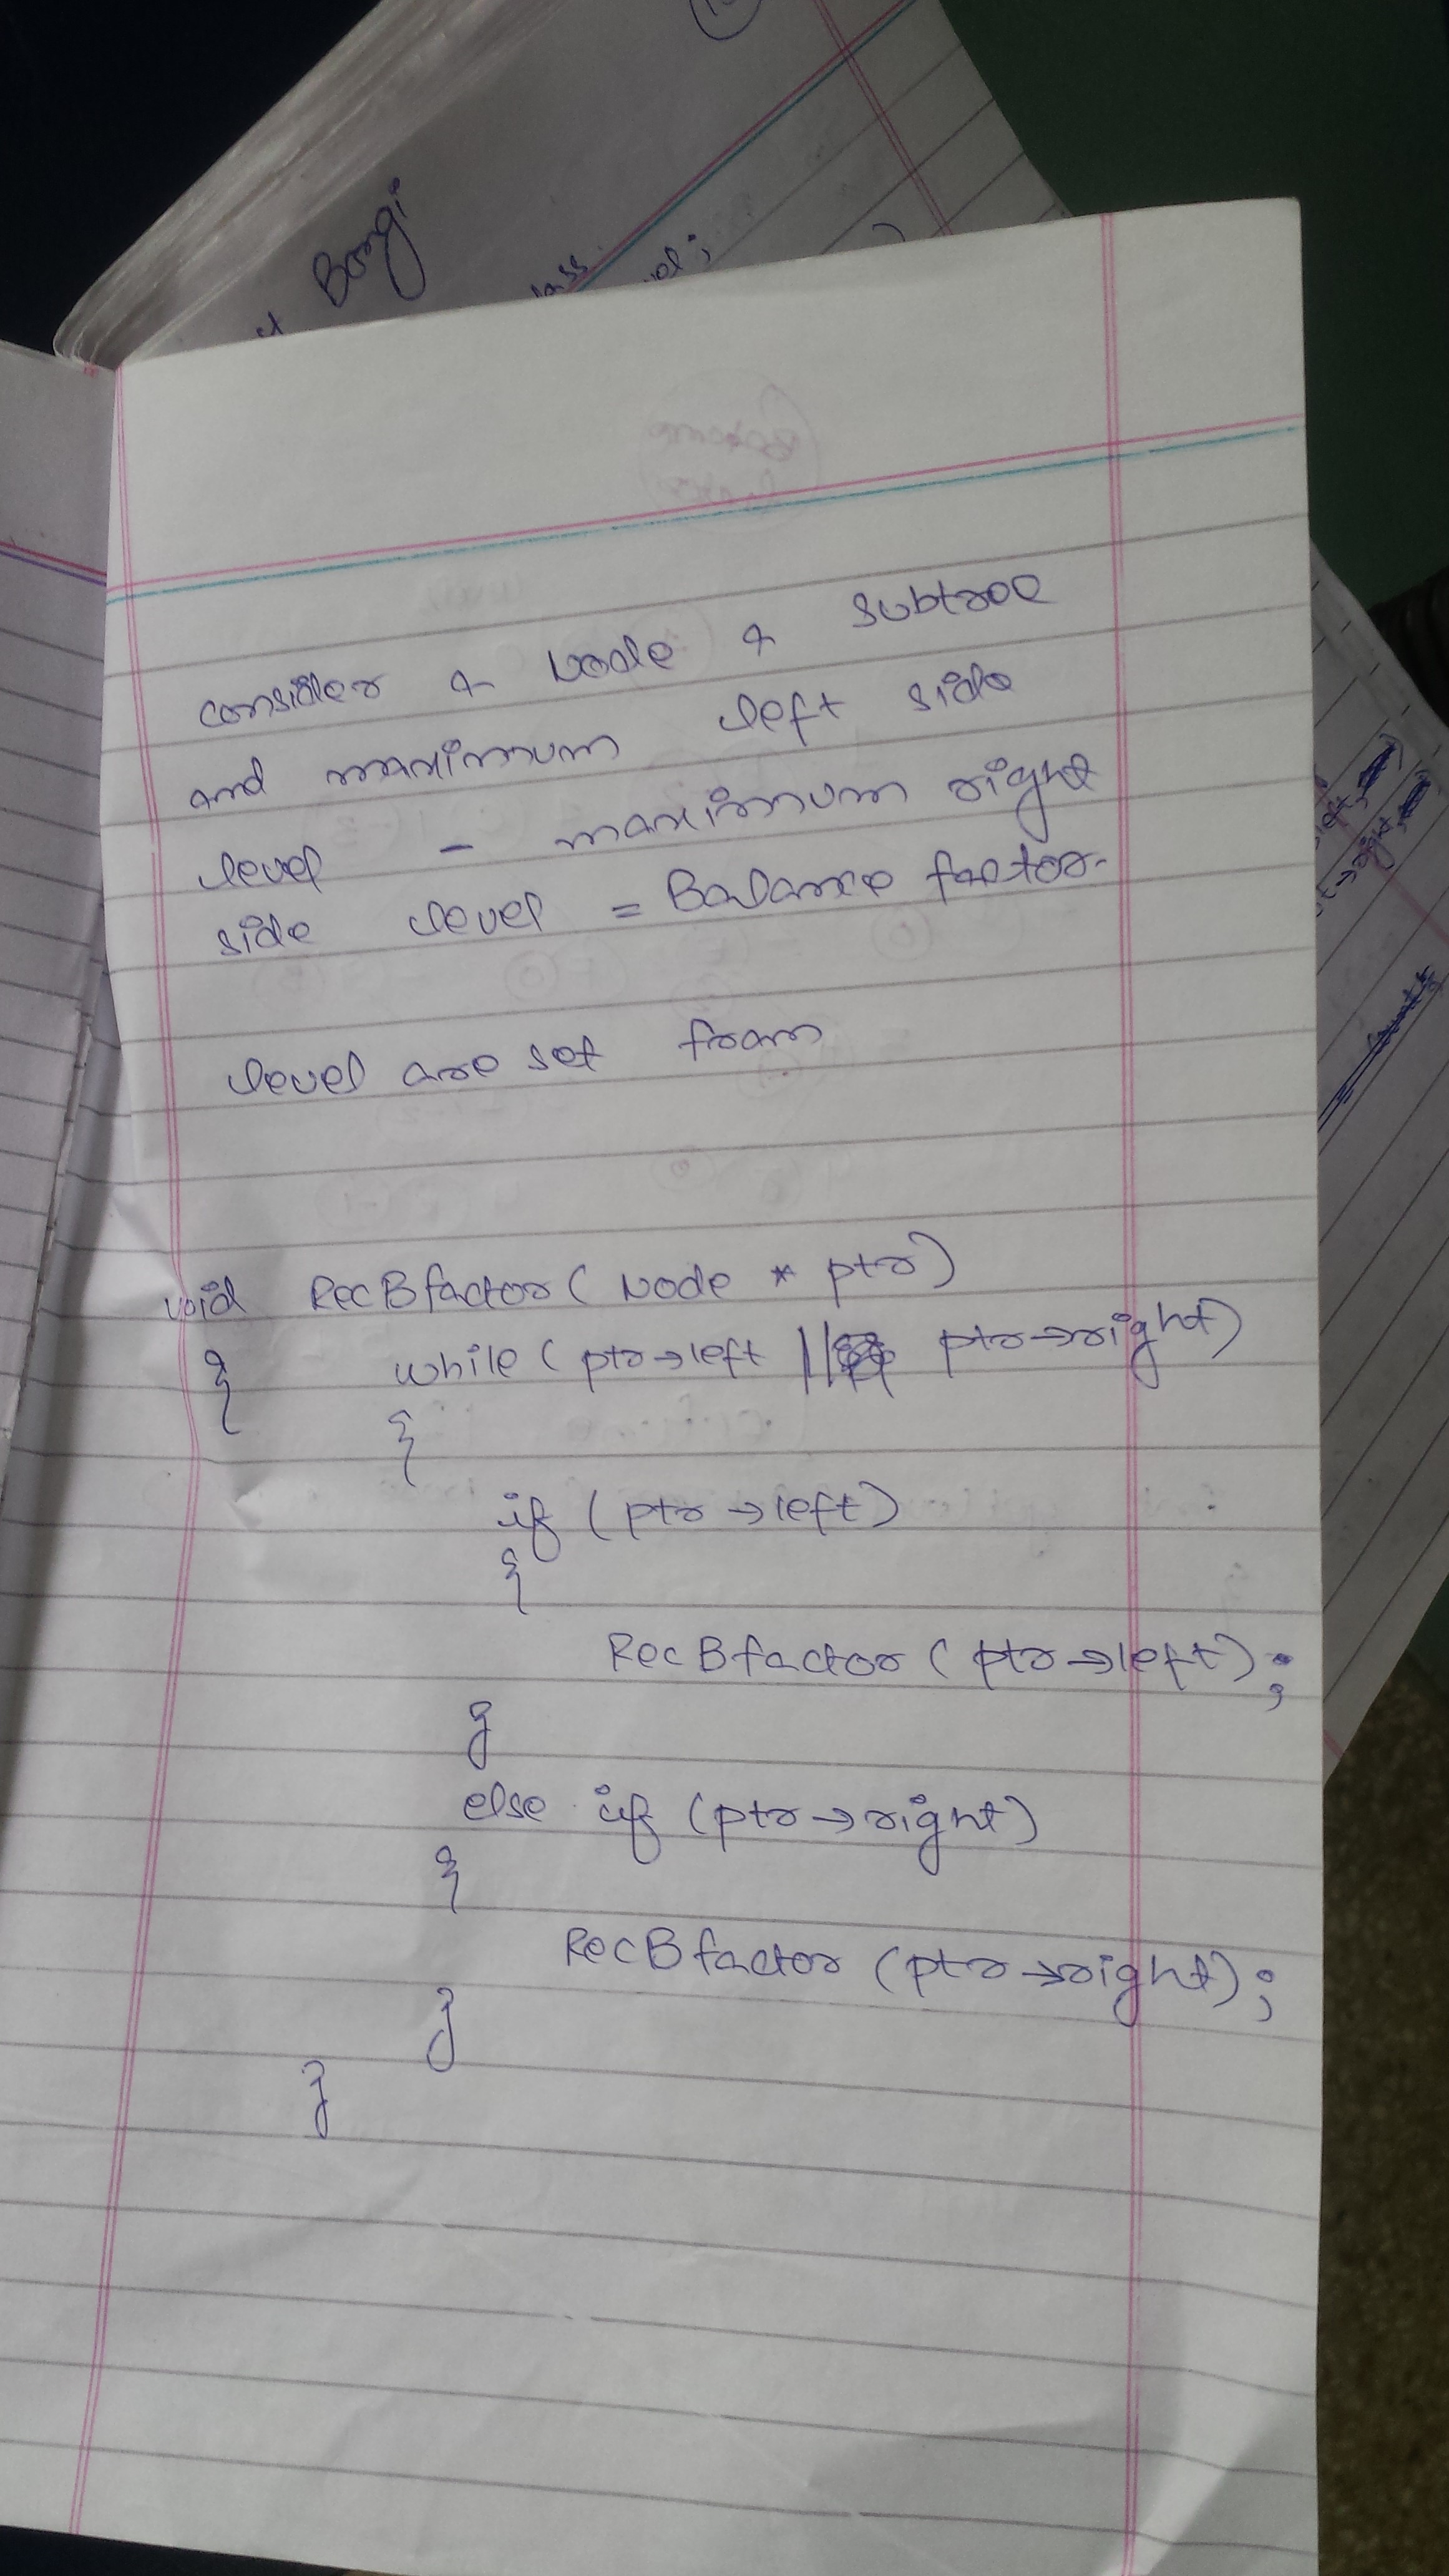 Borgi
consider a Node & subtree
and maximum left side
level - maximum right
side level = Balance factor.
level are set from
void RecBfactor( Node * ptr)
{ while( ptr→left || ptr→right)
{
if (ptr→left)
{
RecBfactor(ptr→left);
}
else if (ptr→right)
{
RecBfactor(ptr→right);
}
}